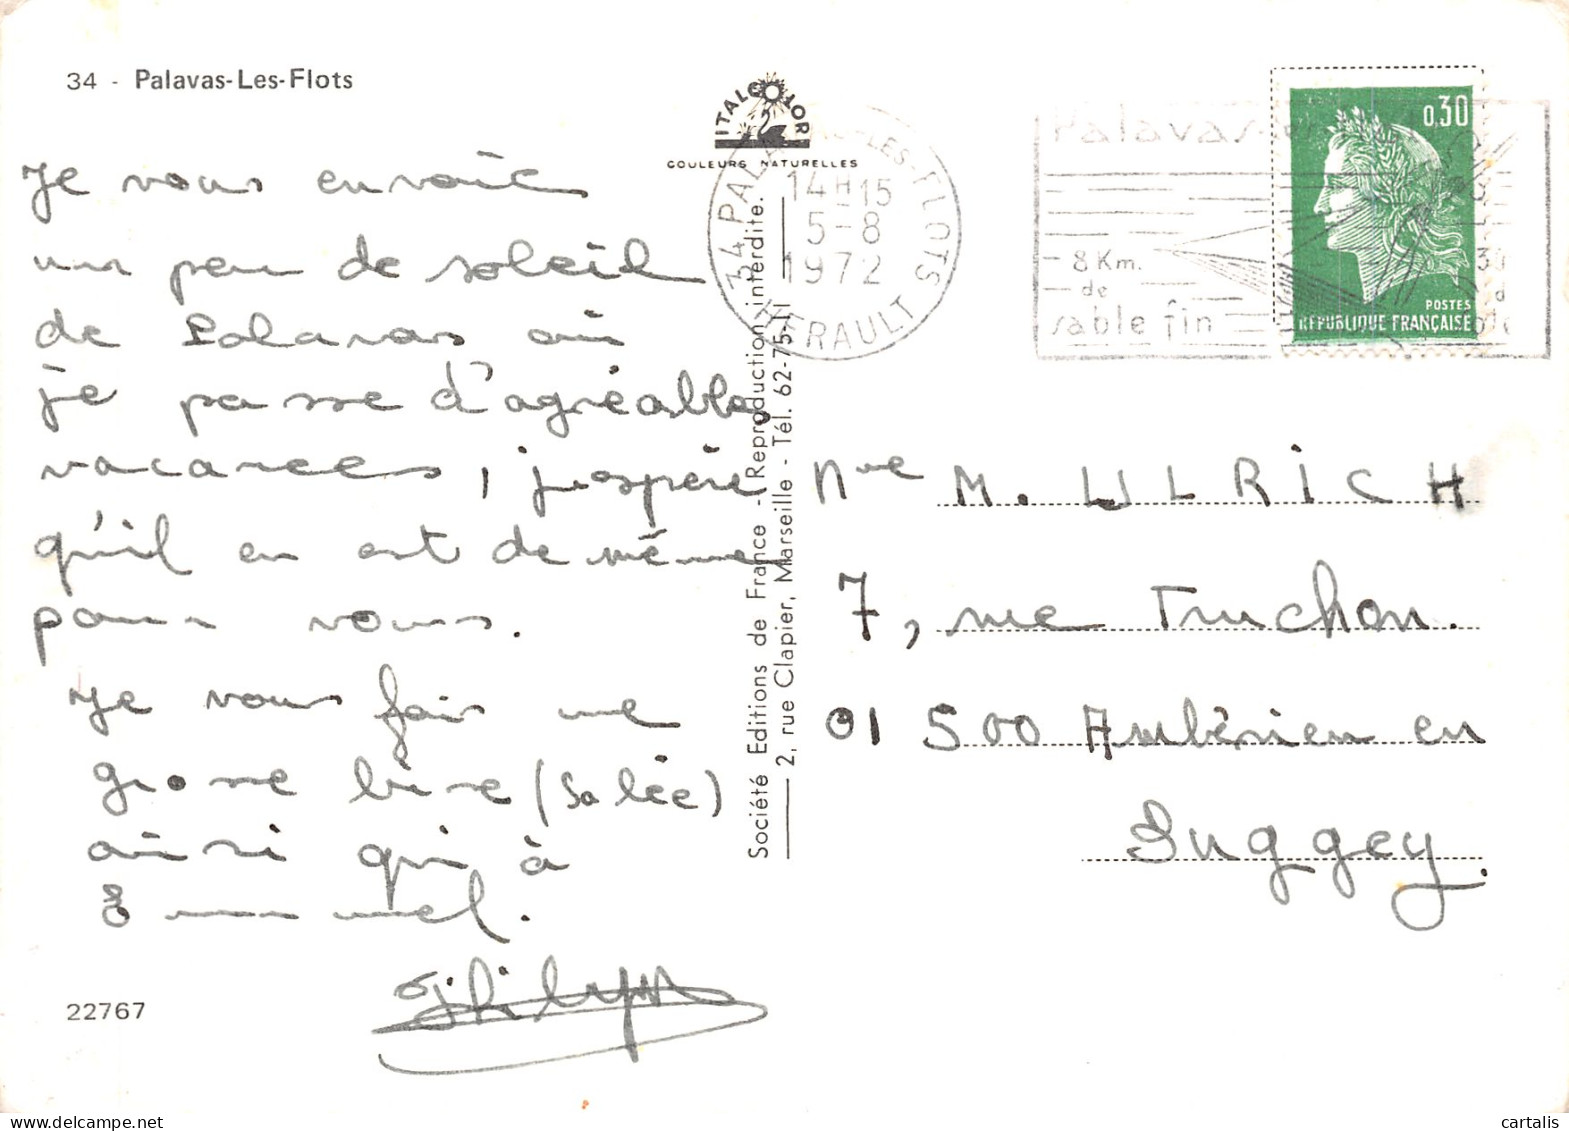 34 - Palavas-Les-Flots
ITALCOLOR
COULEURS NATURELLES
Je vous envoie
un peu de soleil
de Palavas où
je passe d'agréables
vacances, j'espère
qu'il en est de même
pour vous.
Je vous fais une
grosse bise (Salée)
ainsi qu'à
Emmanuel.
22767
Société Editions de France - Reproduction interdite.
2, rue Clapier, Marseille - Tél. 62-75-11
34 PALAVAS-LES-FLOTS
14H15
5-8
1972
HERAULT
Palavas
8 Km.
de
sable fin
0,30
POSTES
REPUBLIQUE FRANÇAISE
M. ULRICH
7, rue Truchon.
01 500 Ambérieu en
Buggey.
cartalis